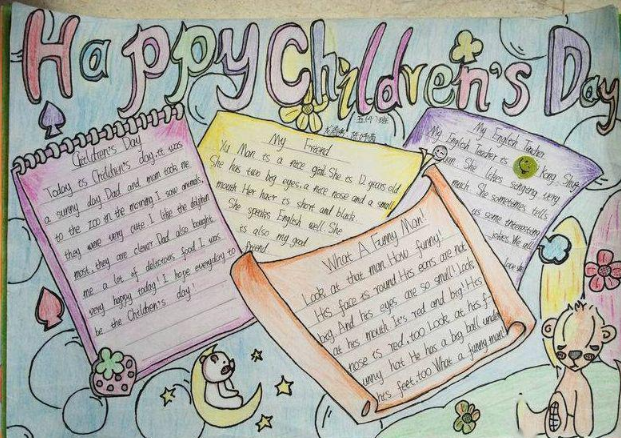 Happy Children's Day
Children's Day
Today is Children's day, it was
a sunny day Dad and mom took me
to the zoo in the morning I saw animals,
they were very cute I like the dolphin
most, they are clever Dad also bought
me a lot of delicious food I was
very happy today! I hope everyday to
be the Children's day!
My Friend
Yu Man is a nice girl She is 12 years old
She has two big eyes, a nice nose and a small
mouth Her hair is short and black
She speaks English well She
is also my good
friend
My English Teacher
My English Teacher is Long, She
She likes singing very
much She sometimes tells
us some interesting
jokes We all
love
What A Funny Man!
Look at that man How funny!
His face is round His ears are not
big And his eyes are so small! Look
at his mouth It's red and big! His
nose is red, too Look at his f
unny hat He has a big ball under
his feet, too What a funny man!